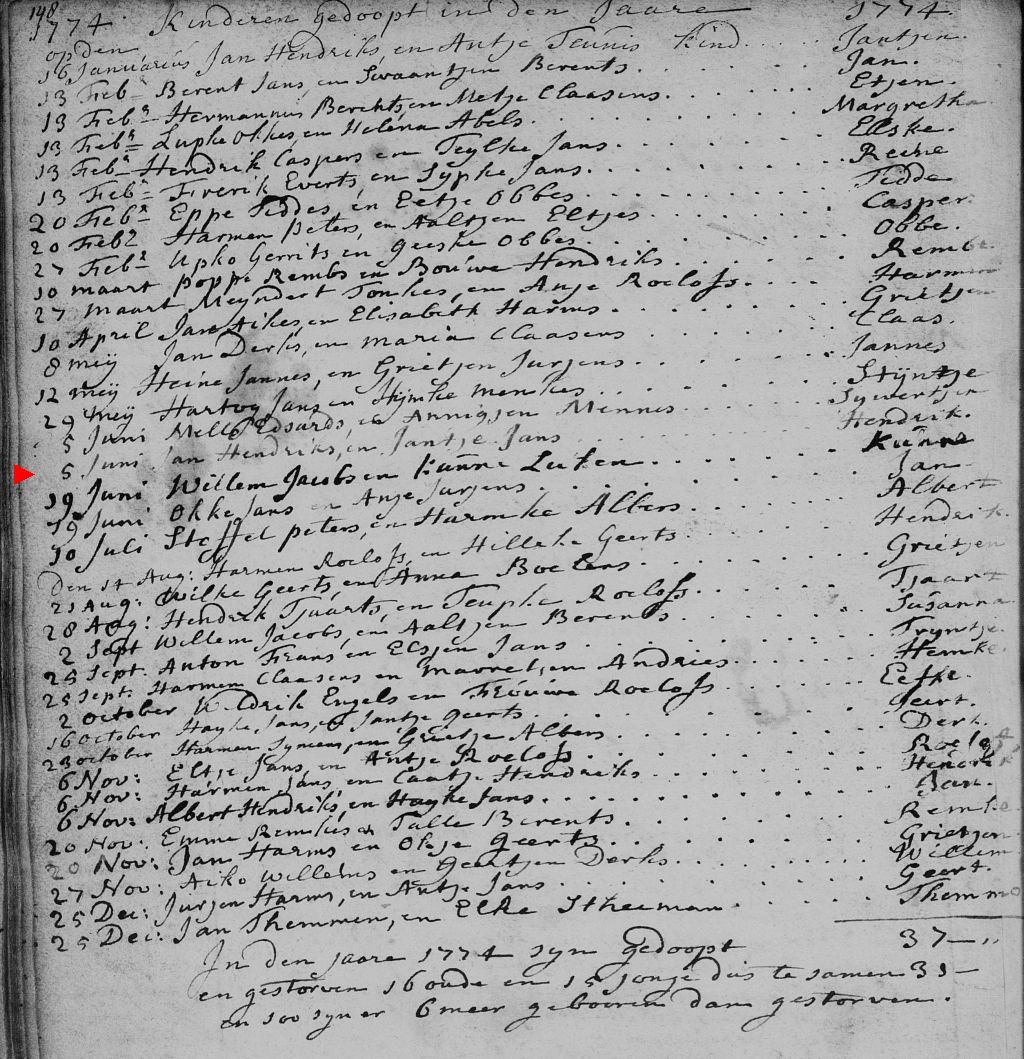 148
1774 Kinderen Gedoopt in den Jaare 1774
op den
16 Januarius Jan Hendriks, en Antje Teunis Kind . . . . Jantjen.
13 Feb: Berent Jans, en Swaantjen Berents . . . . . . Jan.
13 Feb: Hermannus Berents en Metje Claasens . . . . . . Etjen.
13 Feb: Lupke Okkes, en Helena Abels . . . . . . Margretha
13 Feb: Hendrik Caspers en Teylke Jans . . . . . . Elske.
13 Feb: Frerik Everts, en Sypke Jans . . . . . . Reine
20 Feb: Eppe Tiddes, en Eetje Obbes . . . . . . Tidde
20 Feb: Harmen Peters, en Aaltjen Eltjes . . . . . . Casper.
27 Feb: Upko Gerrits en Geeske Obbes . . . . . . Obbe.
10 maart Poppe Rembs en Bouwe Hendriks . . . . . . Rembt
27 maart Meyndert Tonkes, en Anje Roelofs . . . . . . Harmen
10 April Jan Aikes, en Elisabeth Harms . . . . . . Grietjen
8 meij Jan Derks, en maria Claasens . . . . . . Claas.
12 meij Heine Jannes, en Grietjen Jurjens . . . . . . Jannes
29 meij Hartog Jans en Hijmke menkes . . . . . . Stijntje
5 Juni Melle Edsards, en Annigjen Mennes . . . . . . Sywertjen
5 Juni Jan Hendriks, en Jantje Jans . . . . . . Hendrik.
19 Juni Willem Jacobs en Kunne Luken . . . . . . Kunne
19 Juni Okke Jans en Anje Jurjens . . . . . . Jan
10 Juli Stoffel Peters, en Harmke Albers . . . . . . Albert
Den 14 Aug: Harmen Roelofs, en Hilleke Geerts . . . . . . Hendrik.
21 Aug: Wilke Geerts, en Anna Boelens . . . . . . Grietjen
28 Aug: Hendrik Tjaarts, en Teupke Roelofs . . . . . . Tjaart
2 Sept Willem Jacobs, en Aaltjen Berents . . . . . . Susanna
25 Sept: Anton Frans, en Elsjen Jans . . . . . . Tryntje
25 Sept: Harmen Claasens en Marretjen Andries . . . . . . Hemke
2 October Hendrik Engels en Frouwe Roelofs . . . . . . Eefke.
16 October Hayke Jans, en Jantje Geerts . . . . . . Geert.
23 October Harman Symens, en Grietje Albers . . . . . . Derk.
6 Nov: Eltje Jans, en Antje Roelofs . . . . . . Roelof
6 Nov: Harmen Jans, en Caatje Hendriks . . . . . . Hendrik
6 Nov: Albert Hendriks, en Hayke Jans . . . . . . Jan.
20 Nov: Emme Remkes en Talle Berents . . . . . . Remke
20 Nov: Jan Harms en Okje Geerts . . . . . . Grietjen
27 Nov: Aiko Willems en Geertjen Derks . . . . . . Willem
25 Dec: Jurjen Harms, en Antje Jans . . . . . . Geert.
25 Dec: Jan Themmen, en Elke Stheeman . . . . . . Themmo
In den jaare 1774 syn Gedoopt 37—
en gestorven 16 oude en 15 jonge dus te samen 31—
en soo syn er 6 meer geboren dan gestorven.